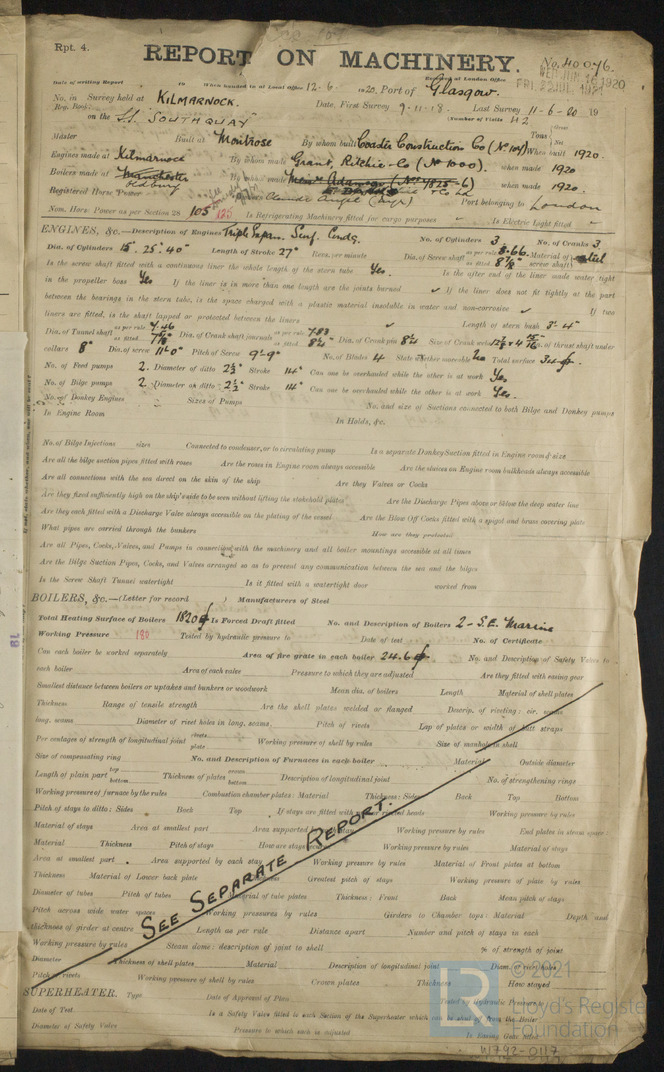 Rpt. 4.
REPORT ON MACHINERY.
No. 40076.
Date of writing Report 19 When handed in at Local Office 12.6.1920. Port of Glasgow.
Received at London Office
No. in Reg. Book. Survey held at KILMARNOCK. Date, First Survey 9-11-18. Last Survey 11-6-20 19
on the S.S. SOUTHQUAY (Number of Visits 42
Master Built at Montrose By whom built Coaster Construction Co (No 104) When built 1920.
Tons Gross Net
Engines made at Kilmarnock By whom made Grant, Ritchie & Co (No 1000). when made 1920
Boilers made at Manchester Oldbury By whom made when made 1920.
Registered Horse Power Port belonging to London
Nom. Horse Power as per Section 28 105 Is Refrigerating Machinery fitted for cargo purposes Is Electric Light fitted
ENGINES, &c.—Description of Engines Triple Expan. Surf. Condg. No. of Cylinders 3 No. of Cranks 3
Dia. of Cylinders 15". 25". 40" Length of Stroke 27" Revs. per minute Dia. of Screw shaft as per rule 8.66 as fitted 8 7/8" Material of screw shaft steel
Is the screw shaft fitted with a continuous liner the whole length of the stern tube Yes. Is the after end of the liner made water tight
in the propeller boss Yes If the liner is in more than one length are the joints burned ✓ If the liner does not fit tightly at the part
between the bearings in the stern tube, is the space charged with a plastic material insoluble in water and non-corrosive ✓ If two
liners are fitted, is the shaft lapped or protected between the liners ✓ Length of stern bush 3'-4"
Dia. of Tunnel shaft as per rule 7.46 as fitted 7 7/8 Dia. of Crank shaft journals as per rule 7.83 as fitted 8 1/4 Dia. of Crank pin 8 1/4 Size of Crank webs Dia. of thrust shaft under
collars 8" Dia. of screw 11'-0" Pitch of Screw 9'-9" No. of Blades 4 State whether moveable No Total surface
No. of Feed pumps 2. Diameter of ditto 2 1/2" Stroke 14" Can one be overhauled while the other is at work Yes
No. of Bilge pumps 2 Diameter of ditto 2 1/2" Stroke 14" Can one be overhauled while the other is at work Yes.
No. of Donkey Engines Sizes of Pumps No. and size of Suctions connected to both Bilge and Donkey pumps
In Engine Room In Holds, &c.
No. of Bilge Injections sizes Connected to condenser, or to circulating pump Is a separate Donkey Suction fitted in Engine room & size
Are all the bilge suction pipes fitted with roses Are the roses in Engine room always accessible Are the sluices on Engine room bulkheads always accessible
Are all connections with the sea direct on the skin of the ship Are they Valves or Cocks
Are they fixed sufficiently high on the ship's side to be seen without lifting the stokehold plates Are the Discharge Pipes above or below the deep water line
Are they each fitted with a Discharge Valve always accessible on the plating of the vessel Are the Blow Off Cocks fitted with a spigot and brass covering plate
What pipes are carried through the bunkers How are they protected
Are all Pipes, Cocks, Valves, and Pumps in connection with the machinery and all boiler mountings accessible at all times
Are the Bilge Suction Pipes, Cocks, and Valves arranged so as to prevent any communication between the sea and the bilges
Is the Screw Shaft Tunnel watertight Is it fitted with a watertight door worked from
BOILERS, &c.—(Letter for record ) Manufacturers of Steel
Total Heating Surface of Boilers 1820 Is Forced Draft fitted No. and Description of Boilers 2 - S.E. Marine
Working Pressure 180 Tested by hydraulic pressure to Date of test No. of Certificate
Can each boiler be worked separately Area of fire grate in each boiler 24.6 No. and Description of Safety Valves to
each boiler Area of each valve Pressure to which they are adjusted Are they fitted with easing gear
Smallest distance between boilers or uptakes and bunkers or woodwork Mean dia. of boilers Length Material of shell plates
Thickness Range of tensile strength Are the shell plates welded or flanged Descrip. of riveting: cir. seams
long. seams Diameter of rivet holes in long. seams Pitch of rivets Lap of plates or width of butt straps
Per centages of strength of longitudinal joint rivets plate Working pressure of shell by rules Size of manhole in shell
Size of compensating ring No. and Description of Furnaces in each boiler Material Outside diameter
Length of plain part top bottom Thickness of plates crown bottom Description of longitudinal joint No. of strengthening rings
Working pressure of furnace by the rules Combustion chamber plates: Material Thickness: Sides Back Top Bottom
Pitch of stays to ditto: Sides Back Top If stays are fitted with nuts or riveted heads Working pressure by rules
Material of stays Area at smallest part Area supported by each stay Working pressure by rules End plates in steam space
Material Thickness Pitch of stays How are stays secured Working pressure by rules Material of stays
Area at smallest part Area supported by each stay Working pressure by rules Material of Front plates at bottom
Thickness Material of Lower back plate Greatest pitch of stays Working pressure of plate by rules
Diameter of tubes Pitch of tubes Material of tube plates Thickness: Front Back Mean pitch of stays
Pitch across wide water spaces Working pressures by rules Girders to Chamber tops: Material Depth and
thickness of girder at centre Length as per rule Distance apart Number and pitch of stays in each
Working pressure by rules Steam dome: description of joint to shell % of strength of joint
Diameter Thickness of shell plates Material Description of longitudinal joint Diam. of rivet holes
Pitch of rivets Working pressure of shell by rules Crown plates Thickness How stayed
SEE SEPARATE REPORT.
SUPERHEATER. Type Date of Approval of Plan Tested by Hydraulic Pressure
Date of Test Is a Safety Valve fitted to each Section of the Superheater which can be shut off from the Boiler
Diameter of Safety Valve Pressure to which each is adjusted Is Easing Gear fitted
© 2021
LR
Lloyd's Register
Foundation
W792-0117